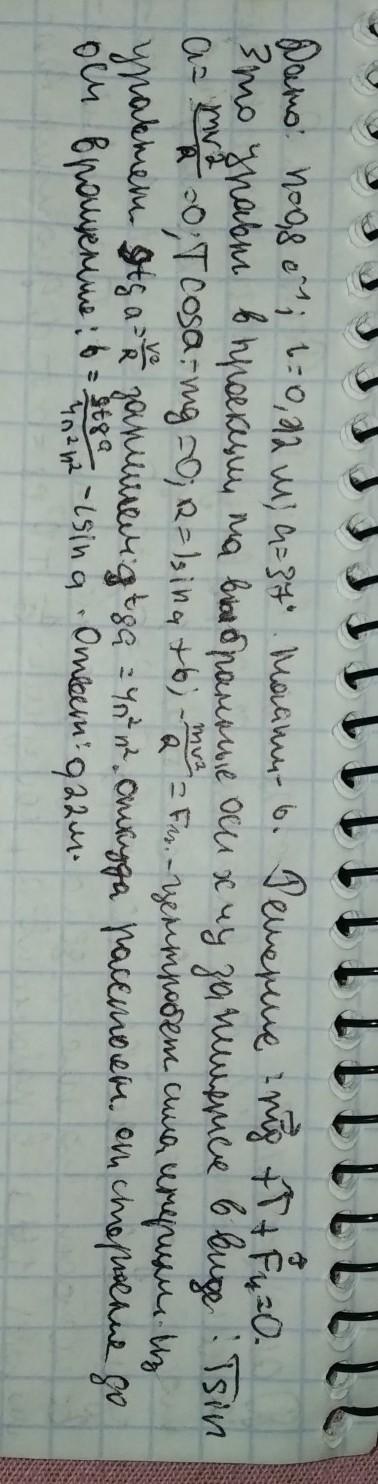 Дано: n=0,8 c⁻¹; l=0,92 м; α=37°. Найти- b. Решение: m\vec{g} + \vec{T} + \vec{F}ц=0.
Это уравн в проекции на выбранные оси x и y запишется в виде: T sin
α= \frac{mv²}{R} =0; T cosα-mg=0; R=lsinα+b; -\frac{mv²}{R} = Fц.-центробеж сила инерции. Из
уравнен gtgα=\frac{v²}{R} запишем: gtgα =4π²n². откуда расстоян. от стержня до
оси вращения: b = \frac{gtgα}{4π²n²} - lsinα. Ответ: 0,22м.